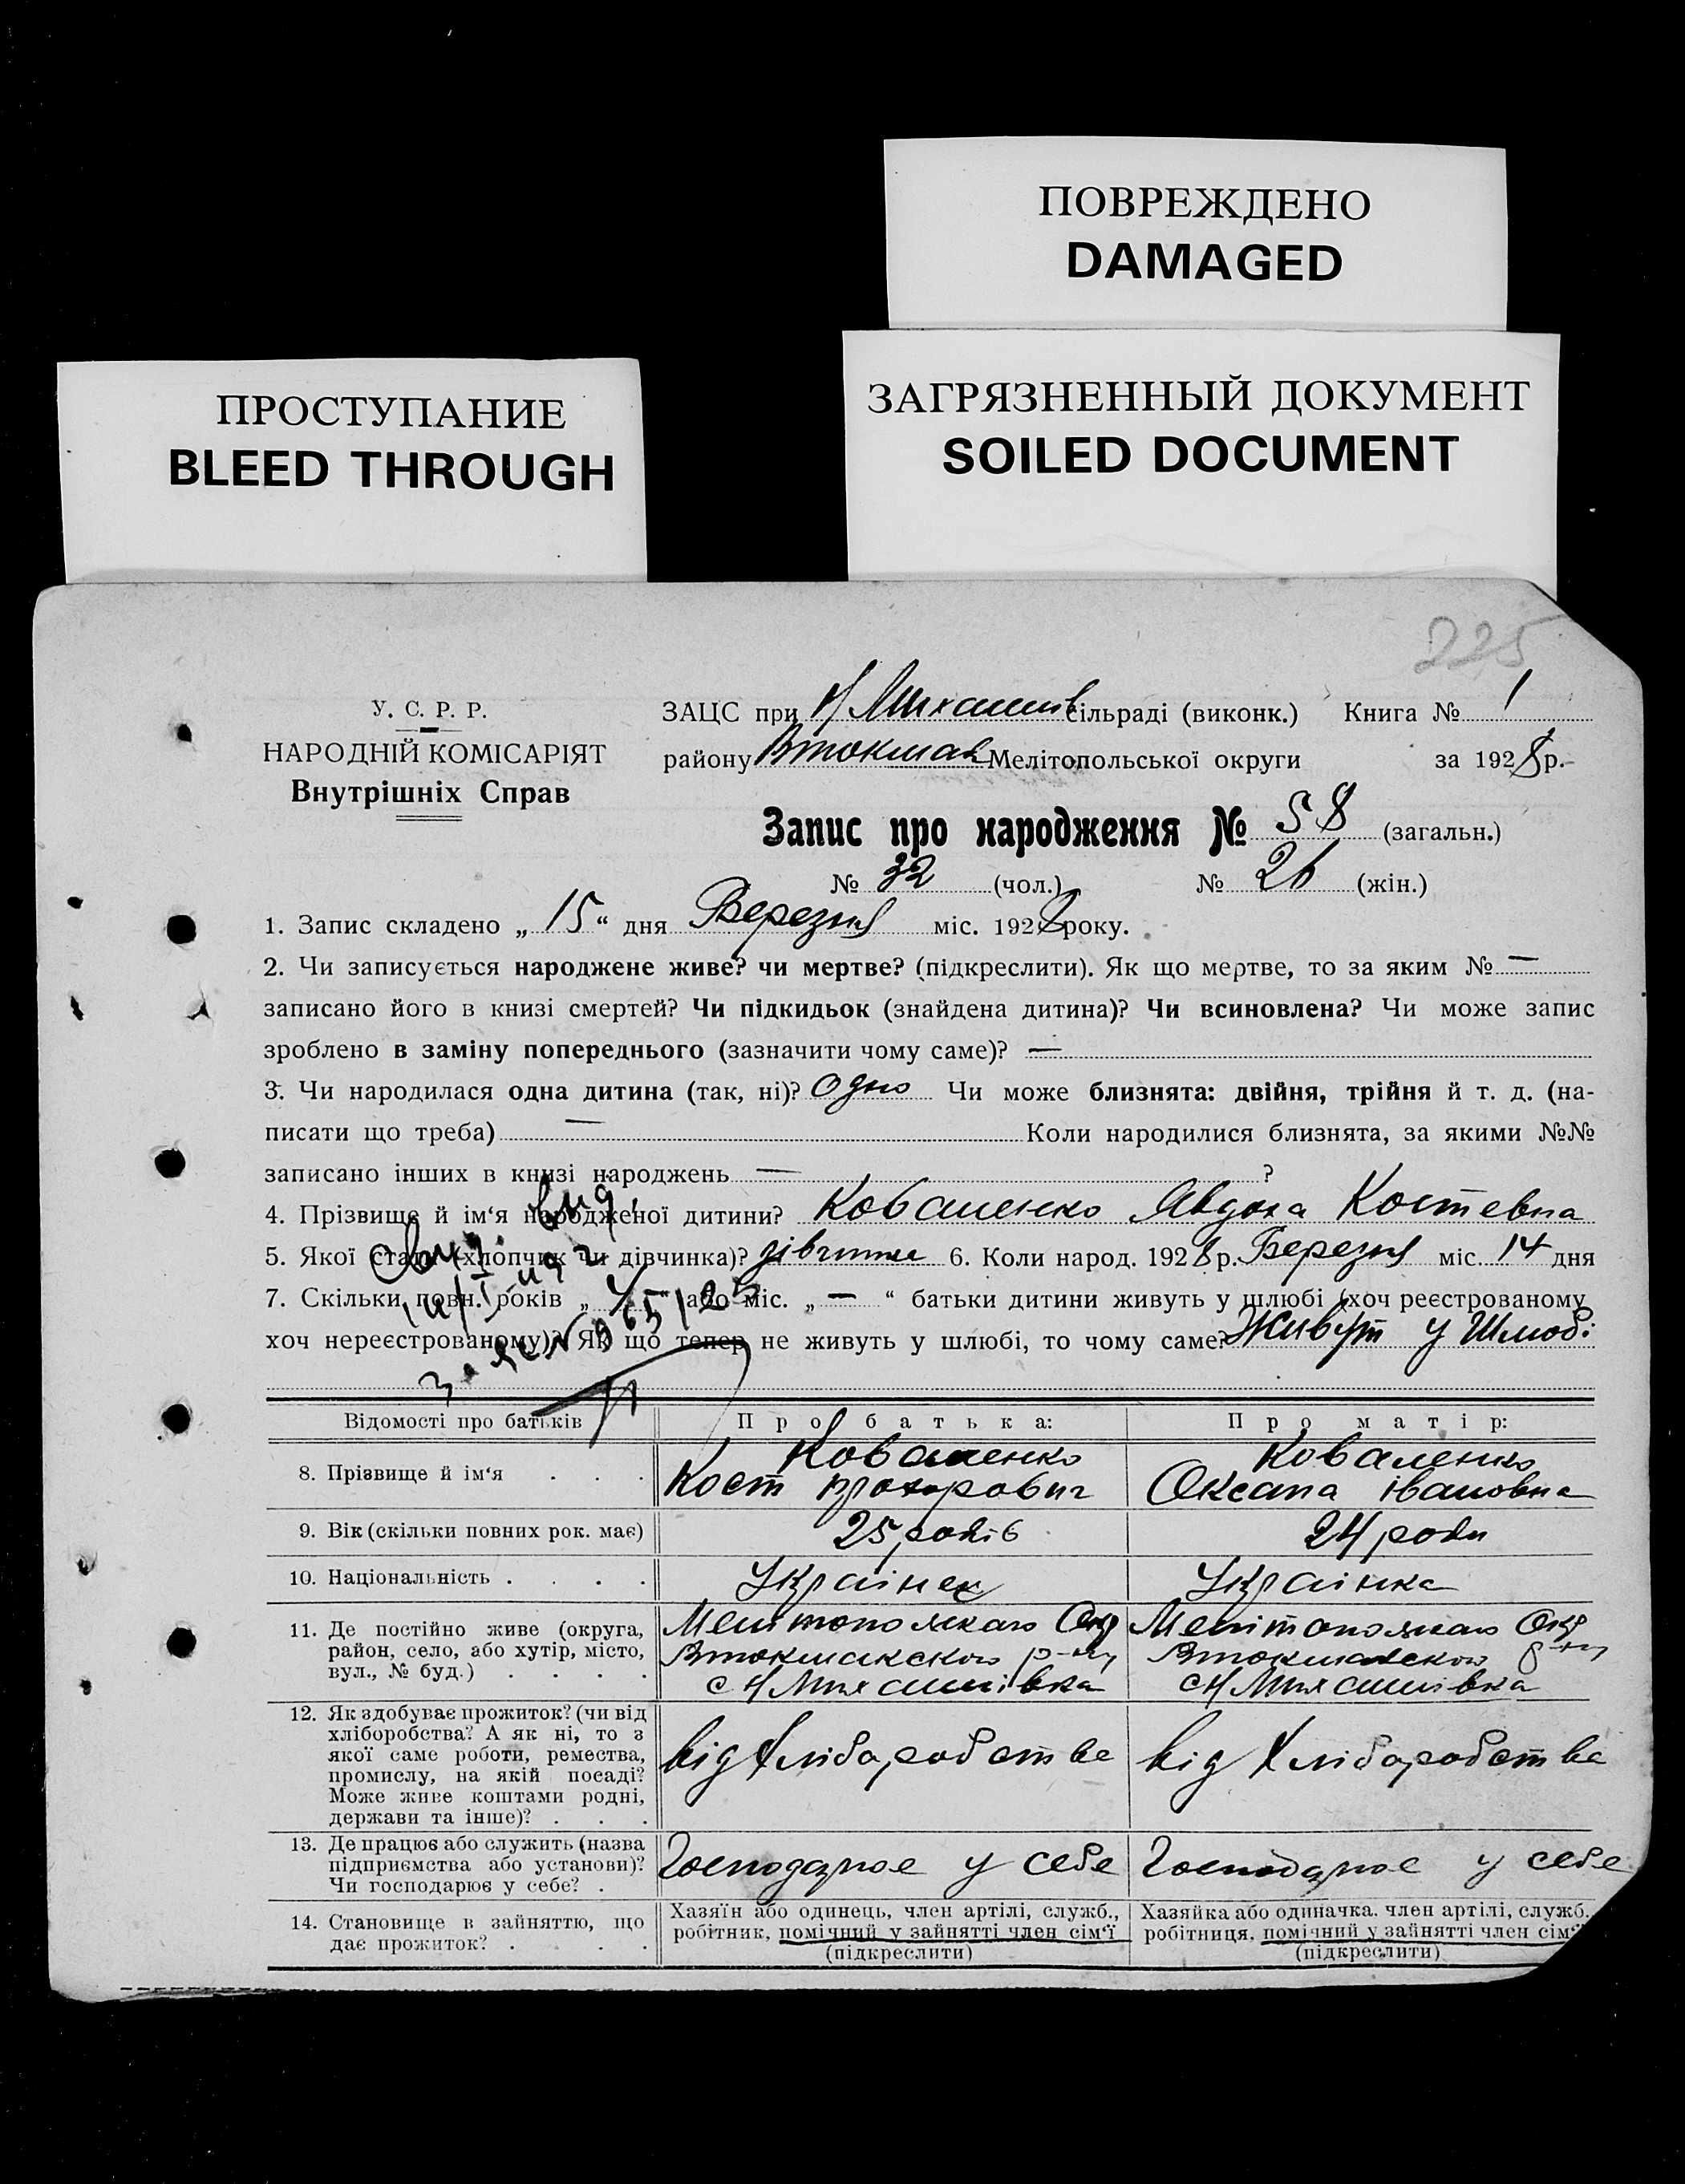 ПОВРЕЖДЕНО
DAMAGED
ПРОСТУПАНИЕ
BLEED THROUGH
ЗАГРЯЗНЕННЫЙ ДОКУМЕНТ
SOILED DOCUMENT
225
У. С. Р. Р.
НАРОДНІЙ КОМІСАРІЯТ
Внутрішніх Справ
ЗАЦС при Н Михайлів сільраді (виконк.) Книга № 1
району Втокмак Мелітопольської округи за 1928 р.
Запис про народження № 58 (загальн.)
№ 32 (чол.) № 26 (жін.)
1. Запис складено „ 15 “ дня Березня міс. 1928 року.
2. Чи записується народжене живе? чи мертве? (підкреслити). Як що мертве, то за яким № —
записано його в книзі смертей? Чи підкидьок (знайдена дитина)? Чи всиновлена? Чи може запис
зроблено в заміну попереднього (зазначити чому саме)? —
3. Чи народилася одна дитина (так, ні)? Одно Чи може близнята: двійня, трійня й т. д. (на-
писати що треба) — Коли народилися близнята, за якими №№
записано інших в книзі народжень — ?
4. Прізвище й ім‘я народженої дитини? Коваленко Явдоха Костевна
5. Якої стати (хлопчик чи дівчинка)? дівчинка 6. Коли народ. 1928 р. Березня міс. 14 дня
7. Скільки повн. років „ 4 “ або міс. „ — “ батьки дитини живуть у шлюбі (хоч реєстрованому
хоч нереєстрованому)? Як що тепер не живуть у шлюбі, то чому саме? Живут у Шлюбі
Відомості про батьків Про батька: Про матір:
8. Прізвище й ім‘я . . . Коваленко Кост Прохорович Коваленко Оксана Івановна
9. Вік (скільки повних рок. має) 25 років 24 роки
10. Національність . . . . Українец Українка
11. Де постійно живе (округа,
район, село, або хутір, місто,
вул., № буд.) . . . .
Мелітопольскаго Окр
Втокмакского р-ну
с Н Михайлівка
Мелітопольскаго Окр
Втокмакского р-ну
с Н Михайлівка
12. Як здобуває прожиток? (чи від
хліборобства? А як ні, то з
якої саме роботи, ремества,
промислу, на якій посаді?
Може живе коштами родні,
держави та інше)? . . .
від Хліборобства від Хліборобства
13. Де працює або служить (назва
підприємства або установи)?
Чи господарює у себе? .
Господарює у себе Господарює у себе
14. Становище в зайняттю, що
дає прожиток? . . .
Хазяїн або одинець, член артілі, служб.,
робітник, помічний у зайнятті член сім‘ї
(підкреслити)
Хазяйка або одиначка, член артілі, служб.
робітниця, помічний у зайнятті член сім‘ї
(підкреслити)